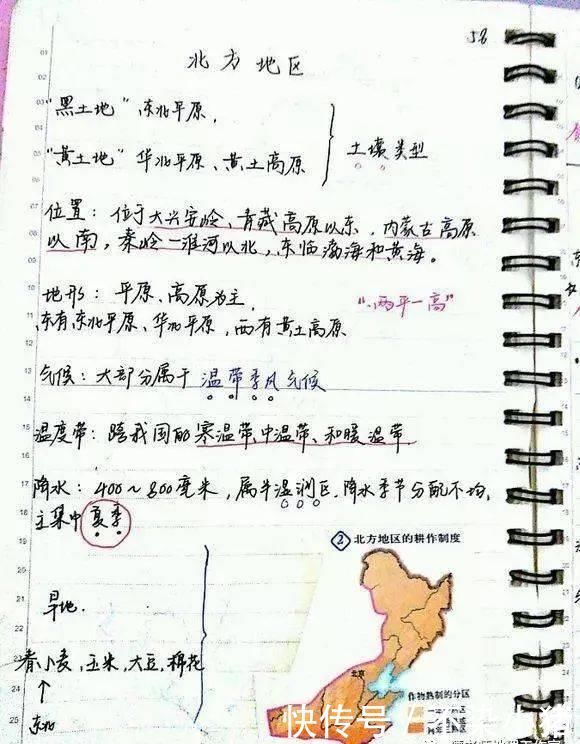 58
北方地区
“黑土地”东北平原,
“黄土地”华北平原、黄土高原
土壤类型
位置：位于大兴安岭、青藏高原以东，内蒙古高原
以南，秦岭－淮河以北，东临渤海和黄海。
地形：平原、高原为主,
“两平一高”
东有东北平原、华北平原，西有黄土高原
气候：大部分属于温带季风气候
温度带：跨我国的寒温带、中温带、和暖温带
降水：400～800毫米，属半湿润区.降水季节分配不均,
主集中夏季
②北方地区的耕作制度
旱地.
春小麦,玉米,大豆,棉花
东北
北京
作物熟制的分区
快传号/